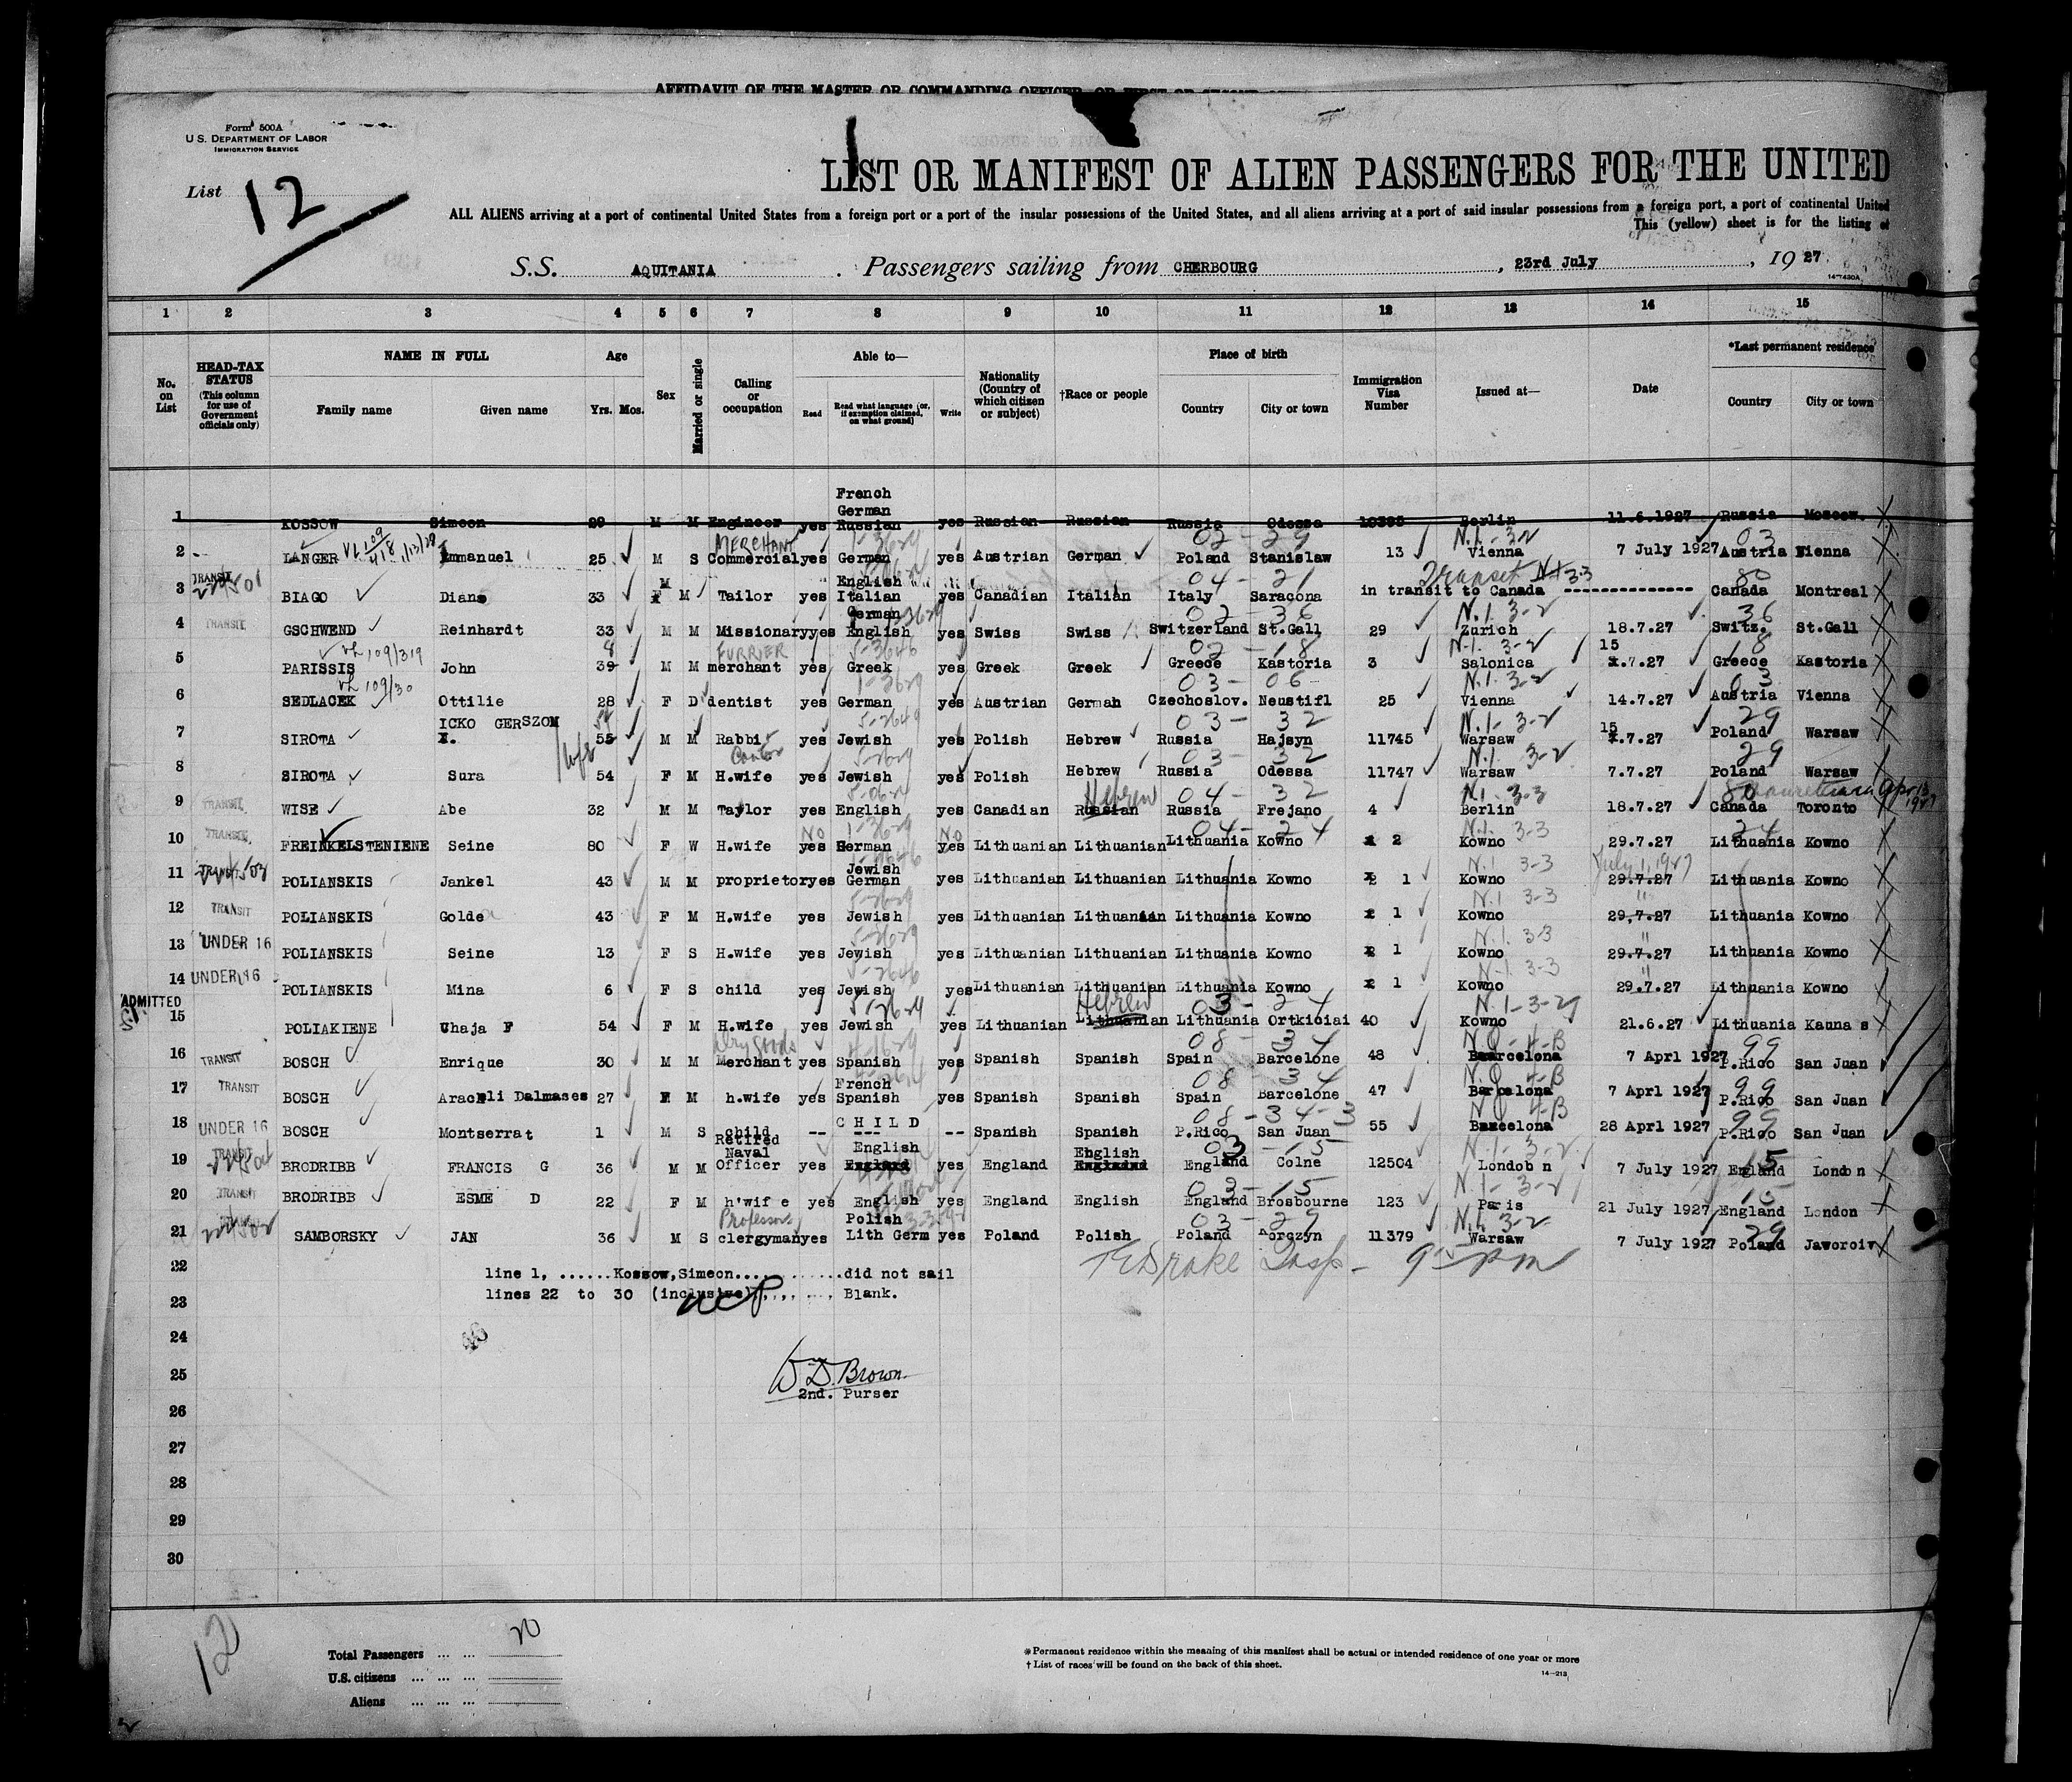 AFFIDAVIT OF THE MASTER OR COMMANDING OFFICER, OR FIRST OR SECOND
Form 500A
U. S. DEPARTMENT OF LABOR
IMMIGRATION SERVICE
List 12
LIST OR MANIFEST OF ALIEN PASSENGERS FOR THE UNITED
ALL ALIENS arriving at a port of continental United States from a foreign port or a port of the insular possessions of the United States, and all aliens arriving at a port of said insular possessions from a foreign port, a port of continental United
This (yellow) sheet is for the listing of
S.S. AQUITANIA . Passengers sailing from CHERBOURG , 23rd July , 19 27
14-430A
1 2 3 4 5 6 7 8 9 10 11 12 13 14 15
No. on List
HEAD-TAX STATUS (This column for use of Government officials only)
NAME IN FULL
Family name Given name
Age
Yrs. Mos.
Sex
Married or single
Calling or occupation
Able to—
Read Read what language (or, if exemption claimed, on what ground) Write
Nationality (Country of which citizen or subject)
†Race or people
Place of birth
Country City or town
Immigration Visa Number
Issued at—
Date
*Last permanent residence
Country City or town
French
German
1 KOSSOW Simeon 29 M M Engineer yes Russian yes Russian Russian Russia Odessa 10395 Berlin 11.6.1927 Russia Moscow.
MERCHANT 02 - 29 N.I. 3-2 03
2 LANGER Emmanuel 25 M S Commercial yes German yes Austrian German Poland Stanislaw 13 Vienna 7 July 1927 Austria Vienna
TRANSIT M English 04 - 21 Transit 3-3 80
3 BIAGO Diano 33 M Tailor yes Italian yes Canadian Italian Italy Saracona in transit to Canada -------------- Canada Montreal
German 02 - 36 N.I. 3-2 36
4 TRANSIT GSCHWEND Reinhardt 33 M M Missionary yes English yes Swiss Swiss Switzerland St.Gall 29 Zurich 18.7.27 Switz. St.Gall
109/319 FURRIER 02 - 18 N.I. 3-2 15 18
5 PARISSIS John 39 M M merchant yes Greek yes Greek Greek Greece Kastoria 3 Salonica .7.27 Greece Kastoria
109/30 03 - 06 N.I. 3-2 03
6 SEDLACEK Ottilie 28 F D dentist yes German yes Austrian German Czechoslov. Neustifl 25 Vienna 14.7.27 Austria Vienna
ICKO GERSZOM 03 - 32 N.I. 3-2 15 29
7 SIROTA 55 M M Rabbi yes Jewish yes Polish Hebrew Russia Hajsyn 11745 Warsaw .7.27 Poland Warsaw
wife Cantor 03 - 32 N.I. 3-2 29
8 SIROTA Sura 54 F M H.wife yes Jewish yes Polish Hebrew Russia Odessa 11747 Warsaw 7.7.27 Poland Warsaw
Hebrew 04 - 32 N.I. 3-3 80
9 TRANSIT WISE Abe 32 M M Taylor yes English yes Canadian Russian Russia Frejano 4 Berlin 18.7.27 Canada Toronto
NO NO 04 - 24 N.I. 3-3 24
10 TRANSIT FREINKELSTENIENE Seine 80 F W H.wife yes German yes Lithuanian Lithuanian Lithuania Kowno 2 Kowno 29.7.27 Lithuania Kowno
Jewish N.I. 3-3 July 1, 1927
11 TRANSIT POLIANSKIS Jankel 43 M M proprietor yes German yes Lithuanian Lithuanian Lithuania Kowno 1 Kowno 29.7.27 Lithuania Kowno
N.I. 3-3 "
12 TRANSIT POLIANSKIS Golde 43 F M H.wife yes Jewish yes Lithuanian Lithuanian Lithuania Kowno 1 Kowno 29.7.27 Lithuania Kowno
N.I. 3-3 "
13 UNDER 16 POLIANSKIS Seine 13 F S H.wife yes Jewish yes Lithuanian Lithuanian Lithuania Kowno 1 Kowno 29.7.27 Lithuania Kowno
N.I. 3-3 "
14 UNDER 16 POLIANSKIS Mina 6 F S child yes Jewish yes Lithuanian Lithuanian Lithuania Kowno 1 Kowno 29.7.27 Lithuania Kowno
ADMITTED Hebrew 03 - 24 N.I. 3-2
15 POLIAKIENE Chaja F 54 F M H.wife yes Jewish yes Lithuanian Lithuanian Lithuania Ortkiciai 40 Kowno 21.6.27 Lithuania Kaunas
Dry goods 08 - 34 N.Q. 4-B 99
16 TRANSIT BOSCH Enrique 30 M M Merchant yes Spanish yes Spanish Spanish Spain Barcelone 48 Barcelona 7 Aprl 1927 P.Rico San Juan
French 08 - 34 N.Q. 4-B 99
17 TRANSIT BOSCH Araceli Dalmases 27 F M h.wife yes Spanish yes Spanish Spanish Spain Barcelone 47 Barcelona 7 Aprl 1927 P.Rico San Juan
CHILD 08 - 34 - 3 N.Q. 4-B 99
18 UNDER 16 BOSCH Montserrat 1 M S child -- --- -- Spanish Spanish P.Rico San Juan 55 Barcelona 28 Aprl 1927 P.Rico San Juan
Retired Naval English English 03 - 15 N.I. 3-2 15
19 TRANSIT BRODRIBB FRANCIS G 36 M M Officer yes England yes England England England Colne 12504 London 7 July 1927 England London
03 - 15 N.I. 3-2 15
20 TRANSIT BRODRIBB ESME D 22 F M h'wife yes English yes England English England Brosbourne 123 Paris 21 July 1927 England London
Professor Polish 03 - 29 N.I. 3-2 29
21 SAMBORSKY JAN 36 M S clergyman yes Lith Germ yes Poland Polish Poland Korczyn 11379 Warsaw 7 July 1927 Poland Jaworoiv
22 line 1, ......Kossow,Simeon............did not sail
Drake Insp - 9 15 pm
23 lines 22 to 30 (inclusive)......... Blank.
24
25 W D. Brown.
2nd. Purser
26
27
28
29
30
12
Total Passengers ... ... 20
U.S. citizens ... ... ...
Aliens ... ... ...
*Permanent residence within the meaning of this manifest shall be actual or intended residence of one year or more
† List of races will be found on the back of this sheet.
14-213